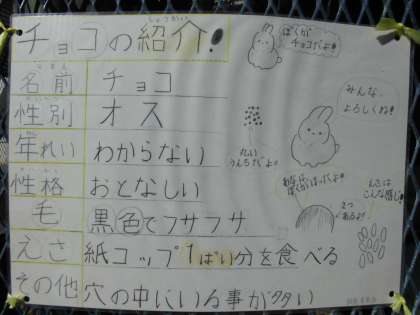 チョコの紹介!
しょうかい
ぼくが
チョコだよ!
名前 チョコ
みんな、
よろしくね!
性別 オス
年れい わからない
丸い
うんちだよ。
性格 おとなしい
あなは
えさは
こんな感じ!
2つ
あるよ!
毛 黒色でフサフサ
えさ 紙コップ1ぱい分を食べる
その他 穴の中にいる事が多い